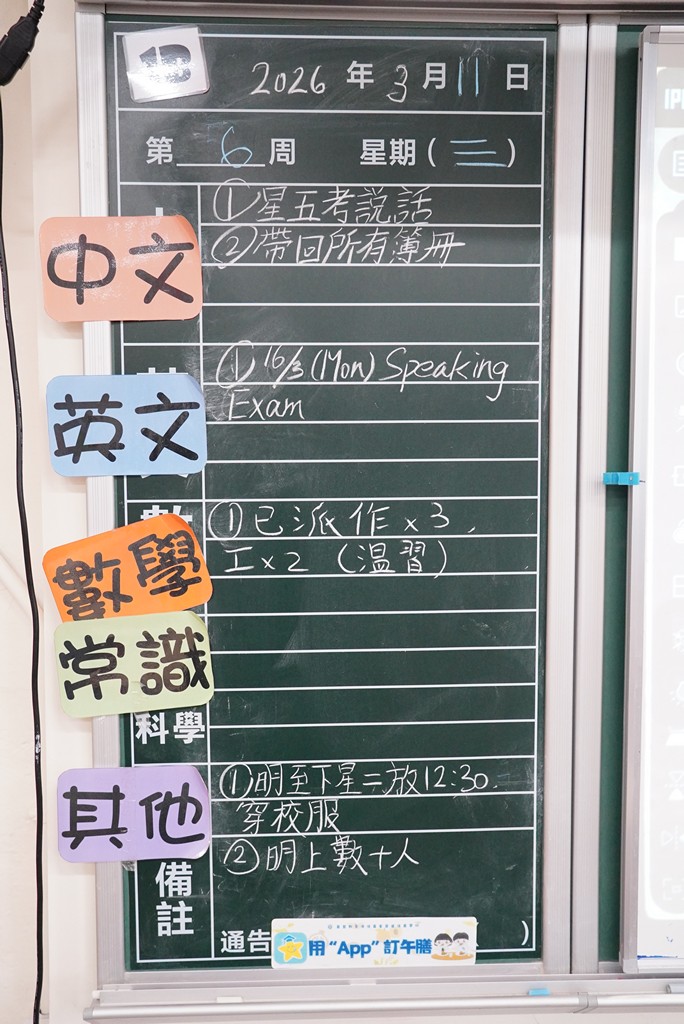 2026 年 3 月 11 日
第 6 周 星期(三)
中文
①星五考說話
②帶回所有簿冊
英文
①16/3 (Mon) Speaking
Exam
數學
①已派作×3,
工×2 (溫習)
常識
科學
其他
①明至下星二放12:30.
穿校服
②明上數+人
備註
通告
用 "App" 訂午膳
)